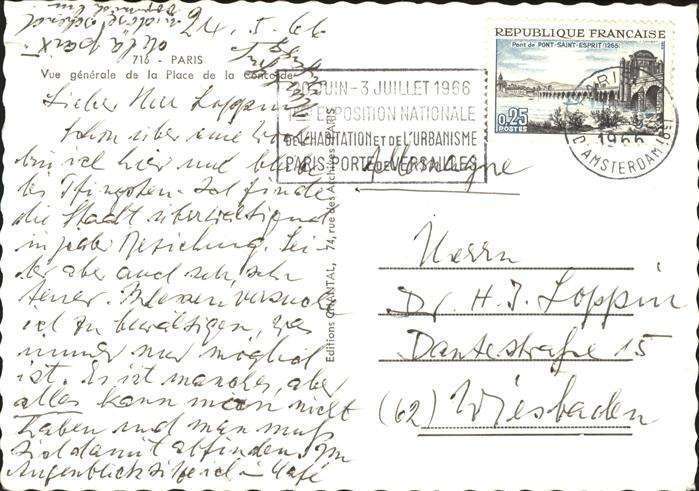 24. 5. 66
716 - PARIS
Vue générale de la Place de la Concorde
Lieber Herr Loppin!
Schon über eine Woche
bin ich hier und bleibe
bis Pfingsten. Ich finde
die Stadt überwältigend
in jeder Beziehung. Lei-
der aber auch sehr, sehr
teuer. Indessen versuche
ich zu bewältigen, was
immer nur möglich
ist. Es ist manches, aber
alles kann man nicht
haben und man muß
sich damit abfinden. Im
Augenblick sitze ich im Café
de la paix
Editions CHANTAL, 74, rue des Archives PARIS
JUIN - 3 JUILLET 1966
EXPOSITION NATIONALE
DE L'HABITATION et DE L'URBANISME
PARIS PORTE DE VERSAILLES
REPUBLIQUE FRANCAISE
Pont de PONT-SAINT-ESPRIT 1265
0,25
POSTES
PARIS
1966
D'AMSTERDAM
Allemagne
Herrn
Dr. H. J. Loppin
Dantestraße 15
(62) Wiesbaden